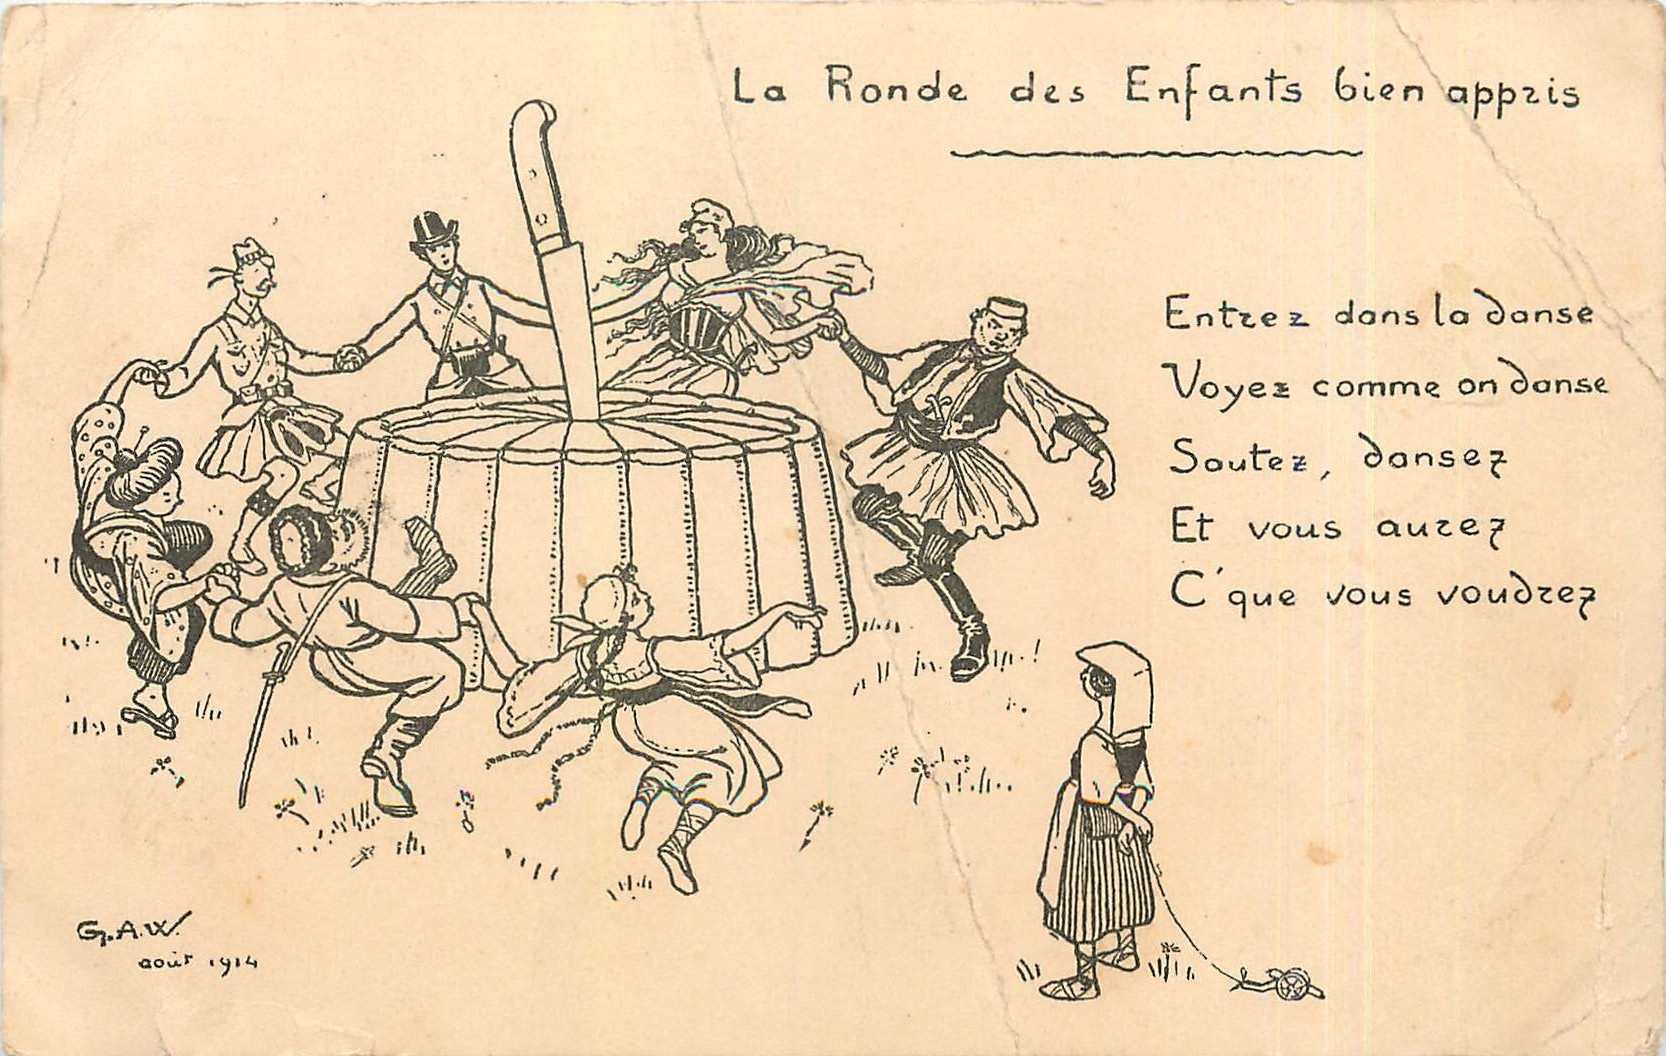 La Ronde des Enfants bien appris
Entrez dans la danse
Voyez comme on danse
Sautez, dansez
Et vous aurez
C'que vous voudrez
G.A.W.
août 1914